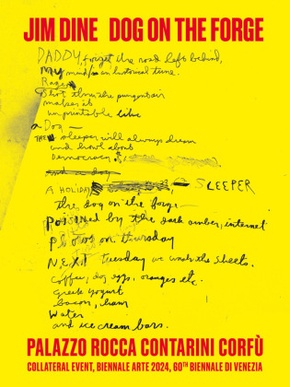 JIM DINE DOG ON THE FORGE
DADDY, forget the road left behind,
My mind is an historical tune.
makes it
unprintable like
a Dog —
The sleeper will always dream
and howl about
Democracy
dog
A HOLIDAY SLEEPER
the dog on the forge —
Poisoned by the dark amber, internet
Photos on thursday
NEXT Tuesday we wash the sheets.
coffee, dog eggs, oranges etc.
Greek yogurt
bacon, ham
Water
and ice cream bars.
PALAZZO ROCCA CONTARINI CORFÙ
COLLATERAL EVENT, BIENNALE ARTE 2024, 60TH BIENNALE DI VENEZIA